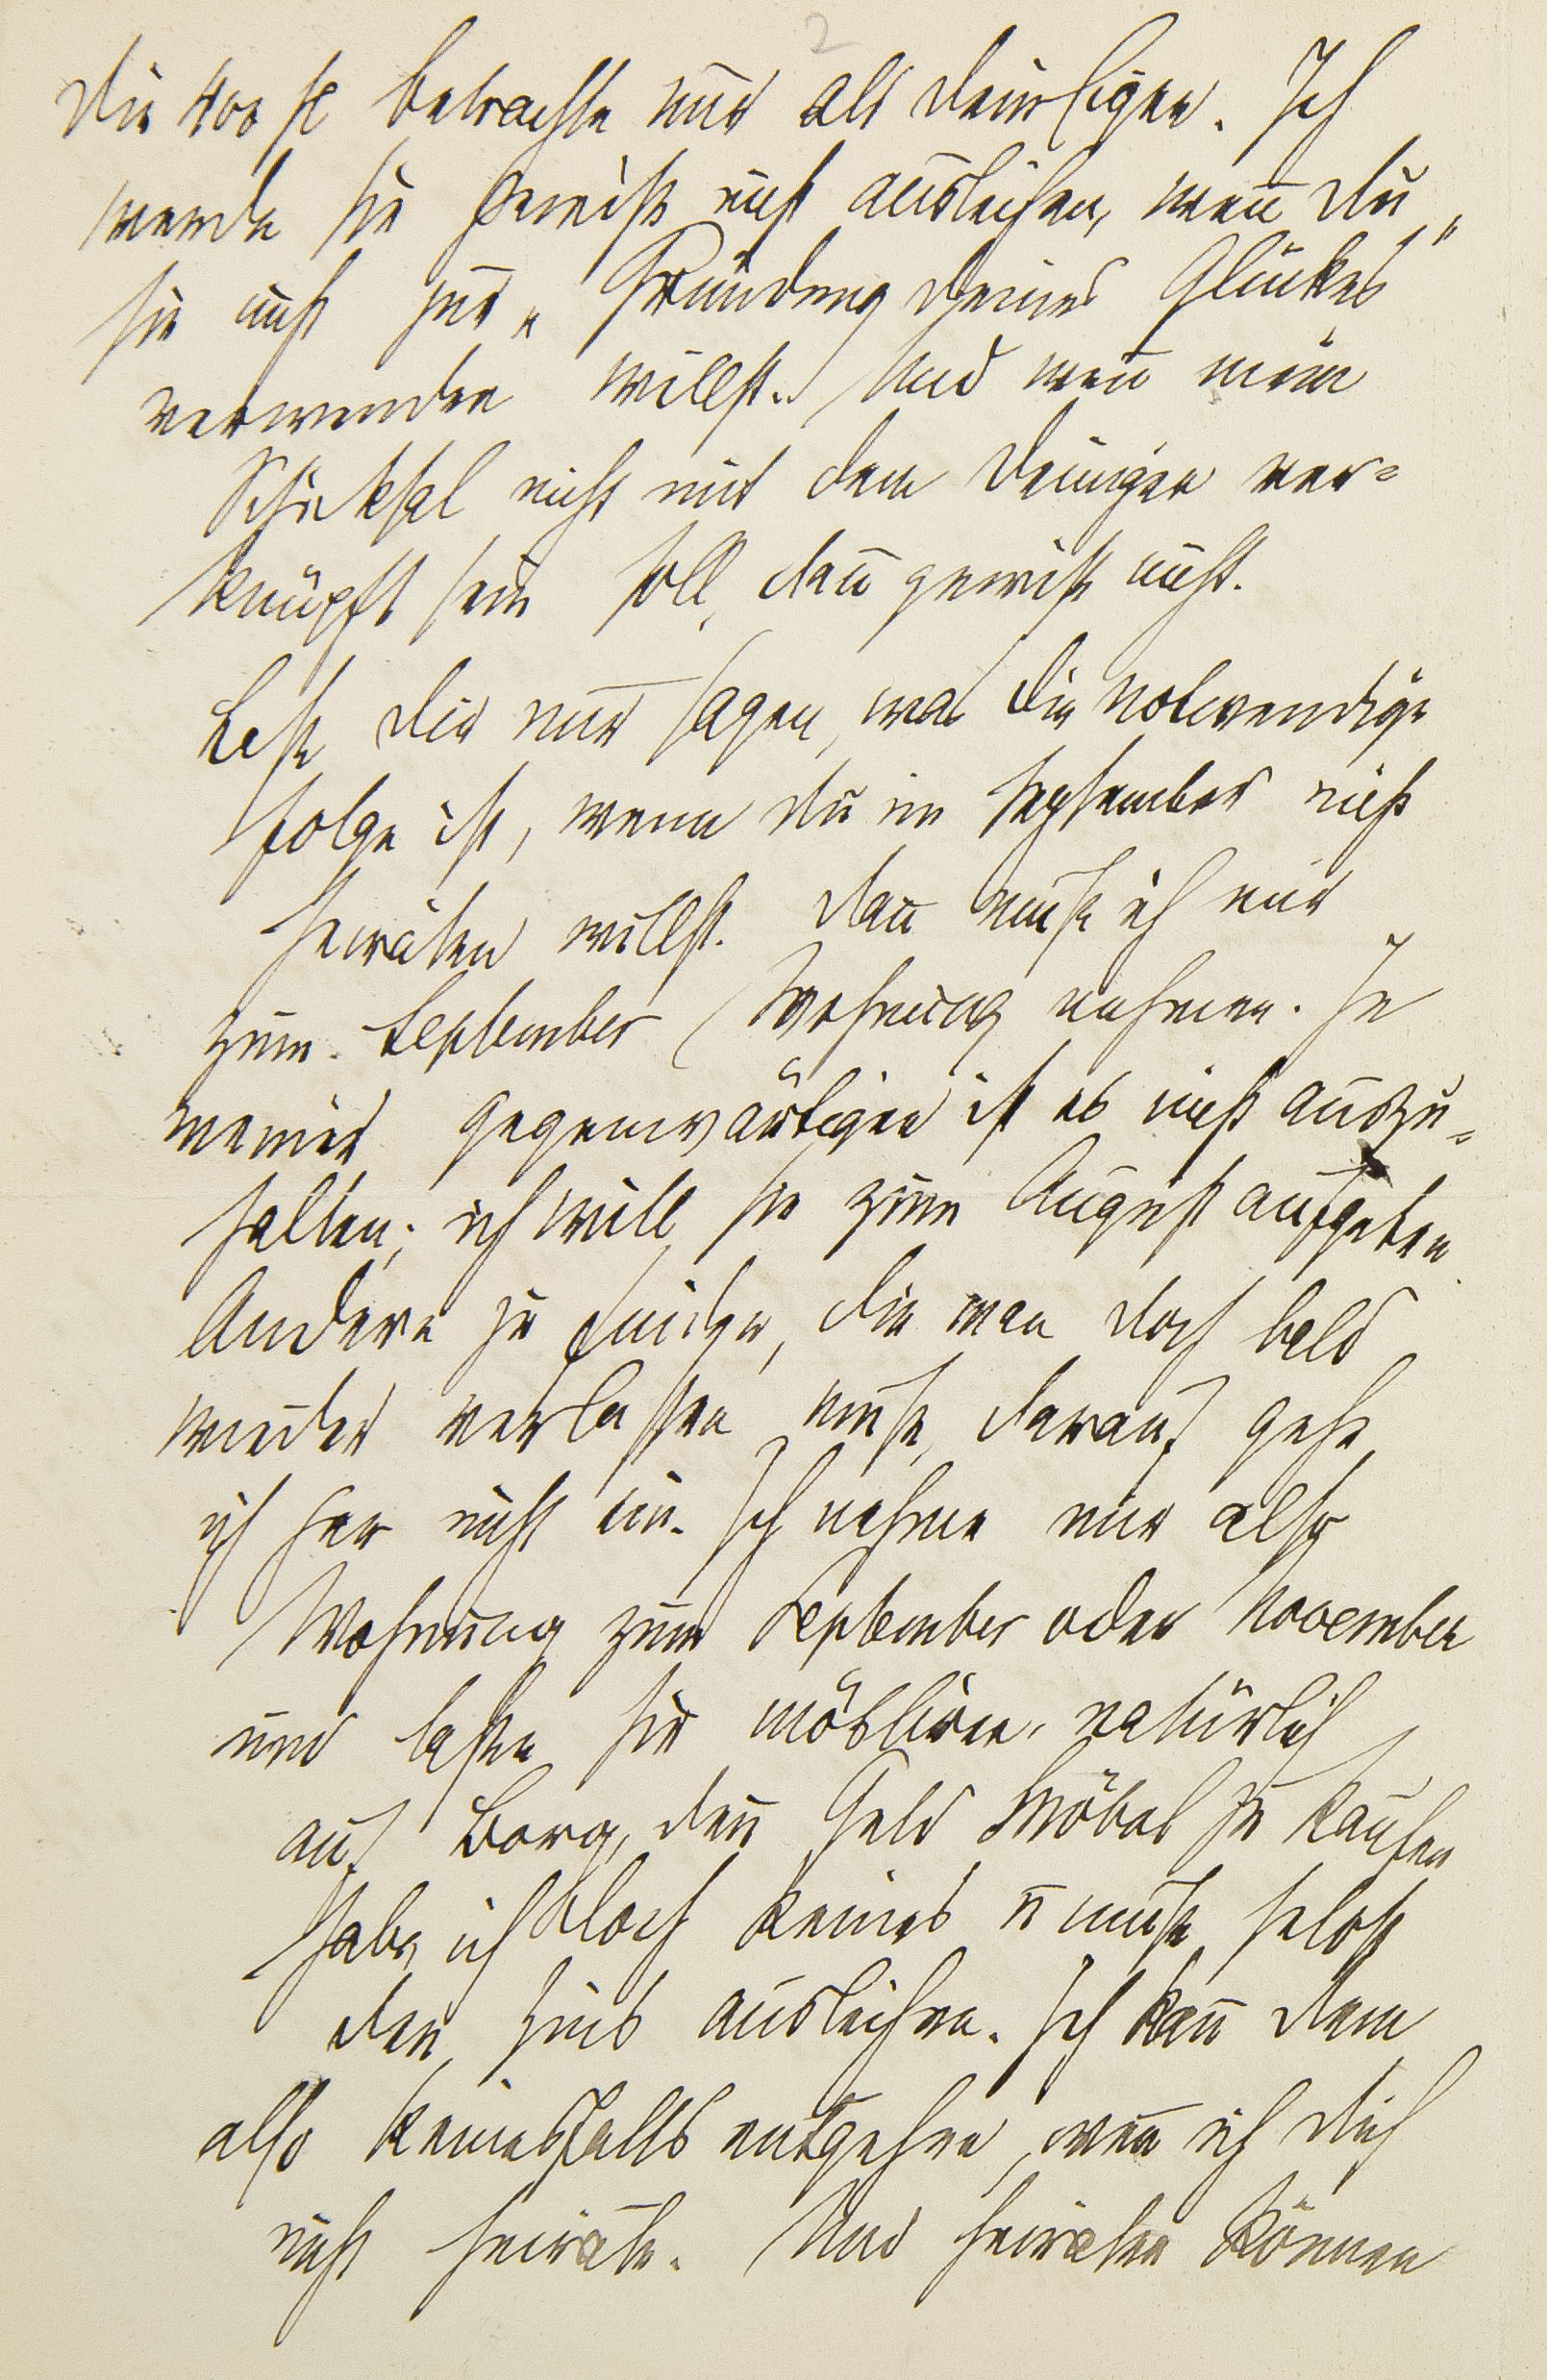 2
Die 400 fl betrachte nur als Dein Eigen. Ich
werde sie gewiß nicht ausleihen, wen̄ Du
sie nicht zur „Gründung Deines Glückes“
verwenden willst. Und wen̄ mein
Schicksal nicht mit dem Deinigen ver=
knüpft sein soll, dan̄ gewiß nicht.
Laß Dir nur sagen, was die notwendige
Folge ist, wenn Du im September nicht
heiraten willst. Dan̄ muß ich mir
zum September Wohnung nehmen. In
meiner gegenwärtigen ist es nicht auszu=
halten; ich will sie zum August aufgeben
Andere zu finden, die man doch bald
wieder verlassen muß, darauf gehe
ich gar nicht ein. Ich nehme mir also
Wohnung zum September oder November
und lasse sie möbliren, natürlich
auf Borg, den̄ Geld Möbel zu kaufen
habe ich doch keines u muß selbst
den Zins ausleihen. Ich kan̄ dem
also keinesfalls entgehen, wen̄ ich Dich
nicht heirate. Und heiraten können